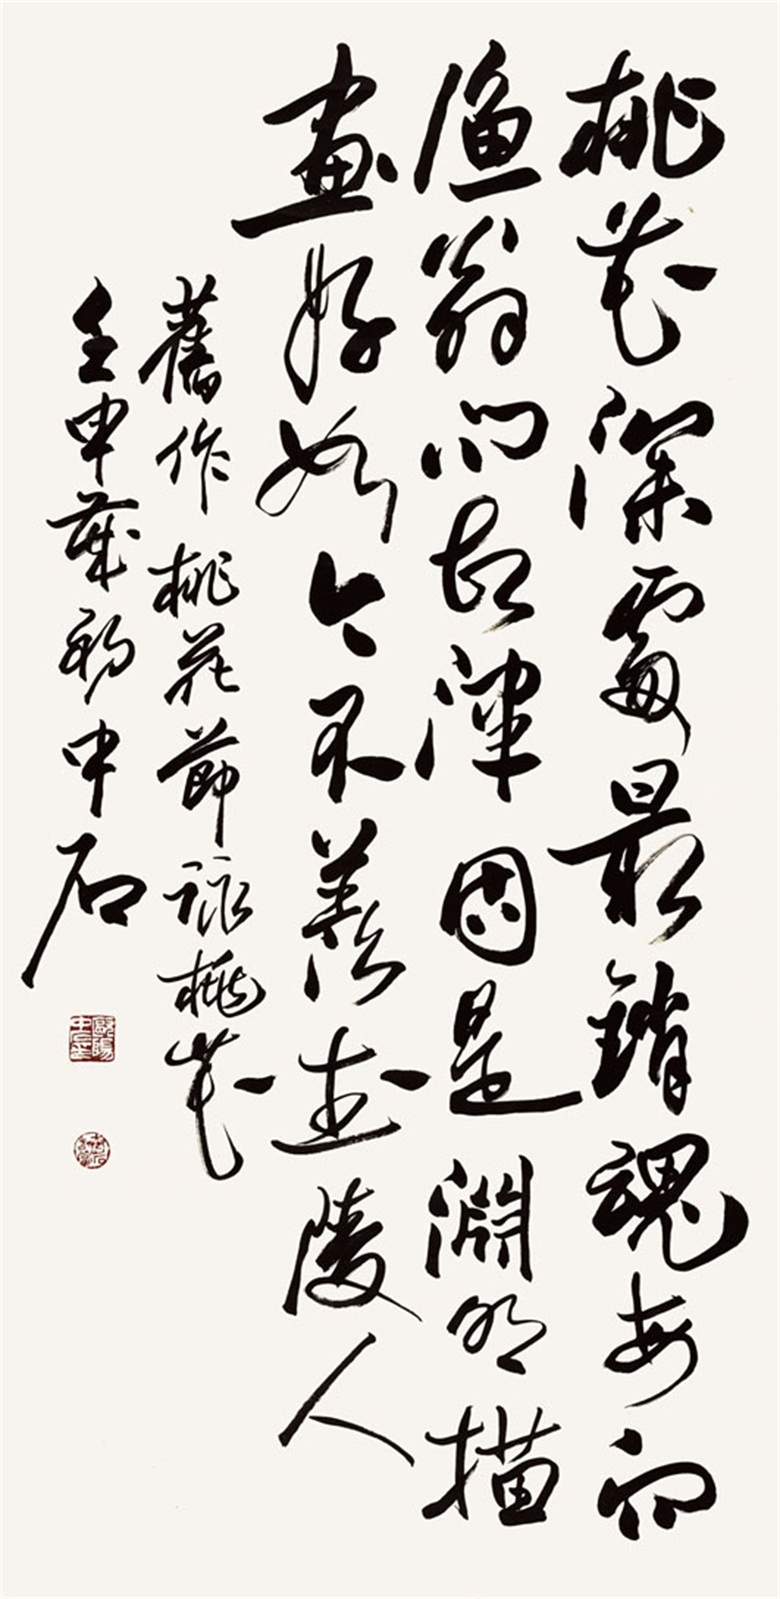 桃花深處最銷魂每向
漁翁問故津因是淵明描
畫好如今不羨武陵人
舊作桃花節詠桃花
壬申歲初中石
歐陽中石